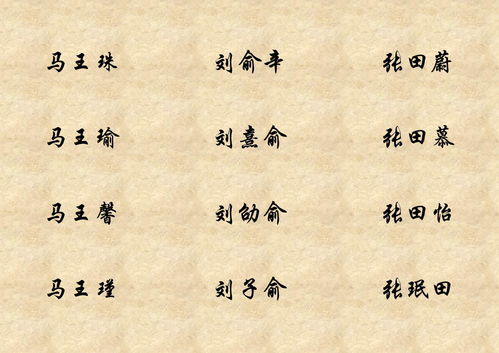 马王珠 刘俞辛 张田蔚
马王瑜 刘熹俞 张田慕
马王馨 刘劭俞 张田怡
马王瑾 刘子俞 张珉田